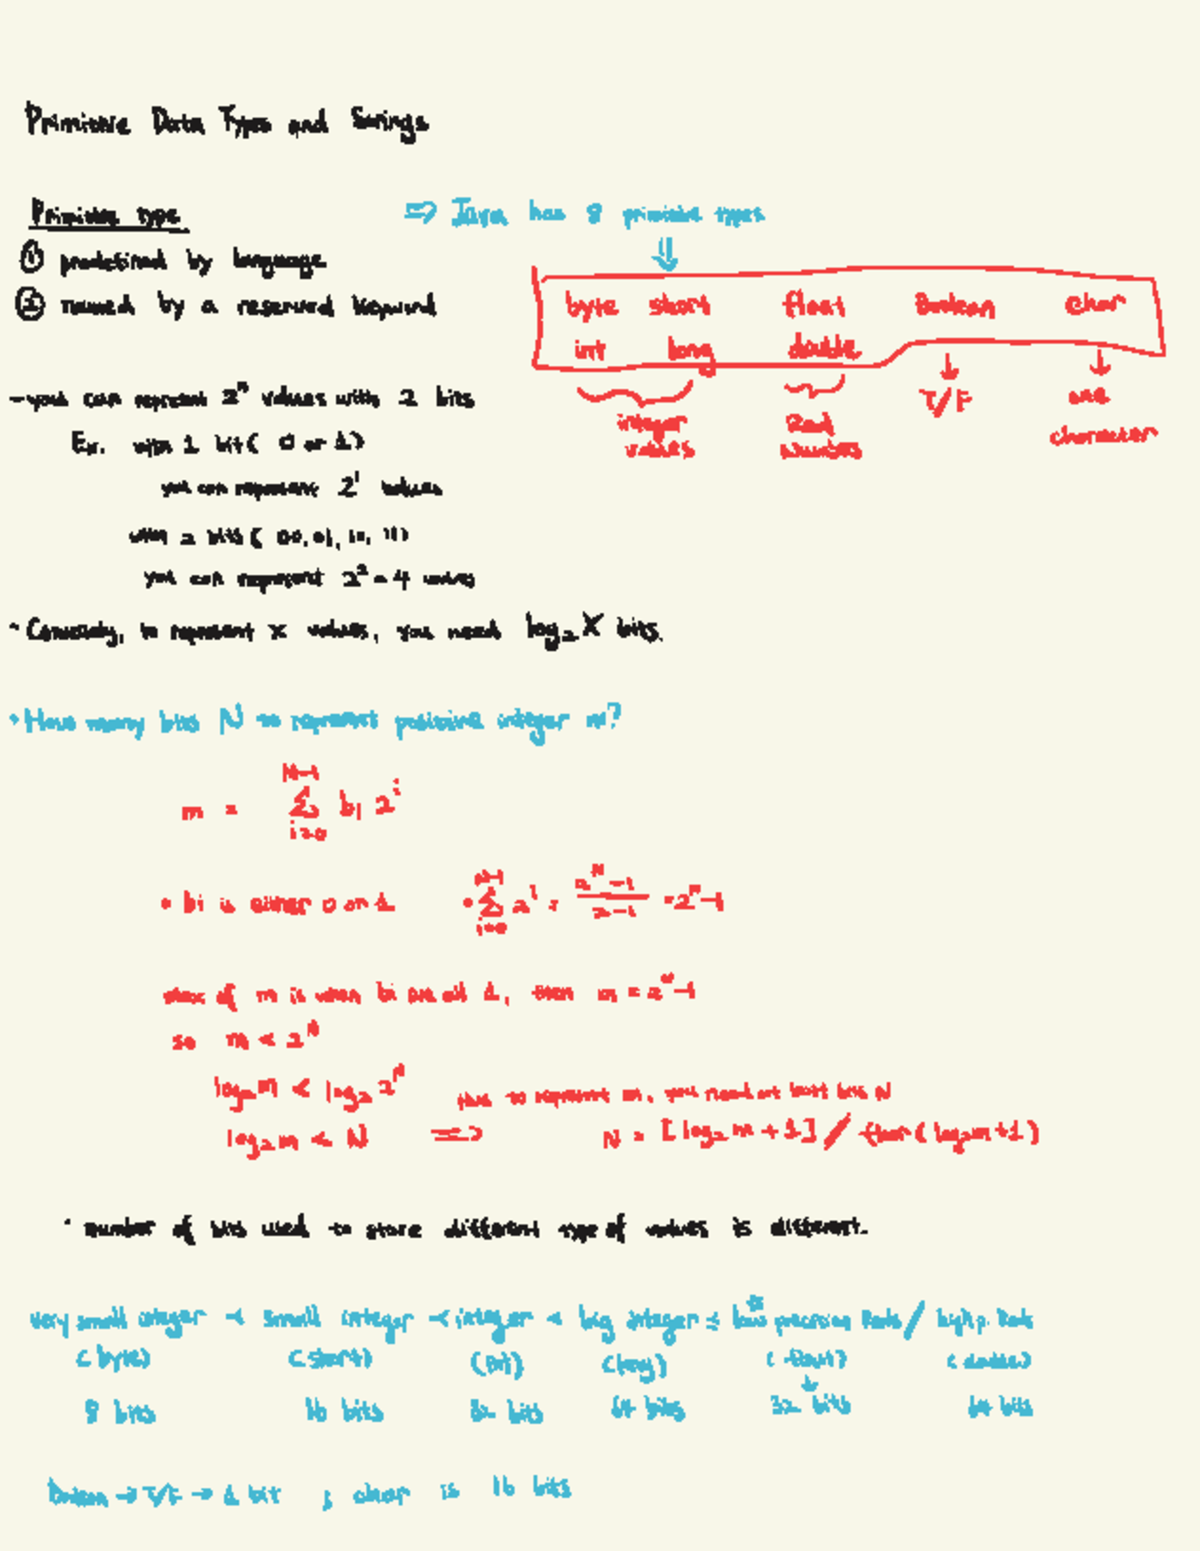 Primitive Data Types and Strings
Primitive type
⇒ Java has 8 primitive types
① predefined by language
② named by a reserved keyword
byte short float Boolean char
int long double
integer values
Real Numbers
T/F
one character
- you can represent 2^n values with 2 bits
Ex. with 1 bit ( 0 or 1)
you can represent 2^1 values
with 2 bits ( 00, 01, 10, 11)
you can represent 2^2 = 4 values
· Conversely, to represent x values, you need log₂ X bits.
· How many bits N to represent positive integer m?
m = Σ_{i=0}^{N-1} bi 2^i
• bi is either 0 or 1
• Σ_{i=0}^{N-1} 2^i = (2^N - 1)/(2 - 1) = 2^N - 1
max of m is when bi are all 1, then m = 2^N - 1
so m < 2^N
log₂ m < log₂ 2^N
thus to represent m, you need at least bits N
log₂ m < N ⇒ N = [log₂ m + 1] / floor (log₂m + 1)
· number of bits used to store different type of values is different.
very small integer < small integer < integer < big integer ≤ low precision Reals / high p. Reals
(byte) (short) (int) (long) (float) (double)
8 bits 16 bits 32 bits 64 bits 32 bits 64 bits
Boolean → T/F → 1 bit ; char is 16 bits